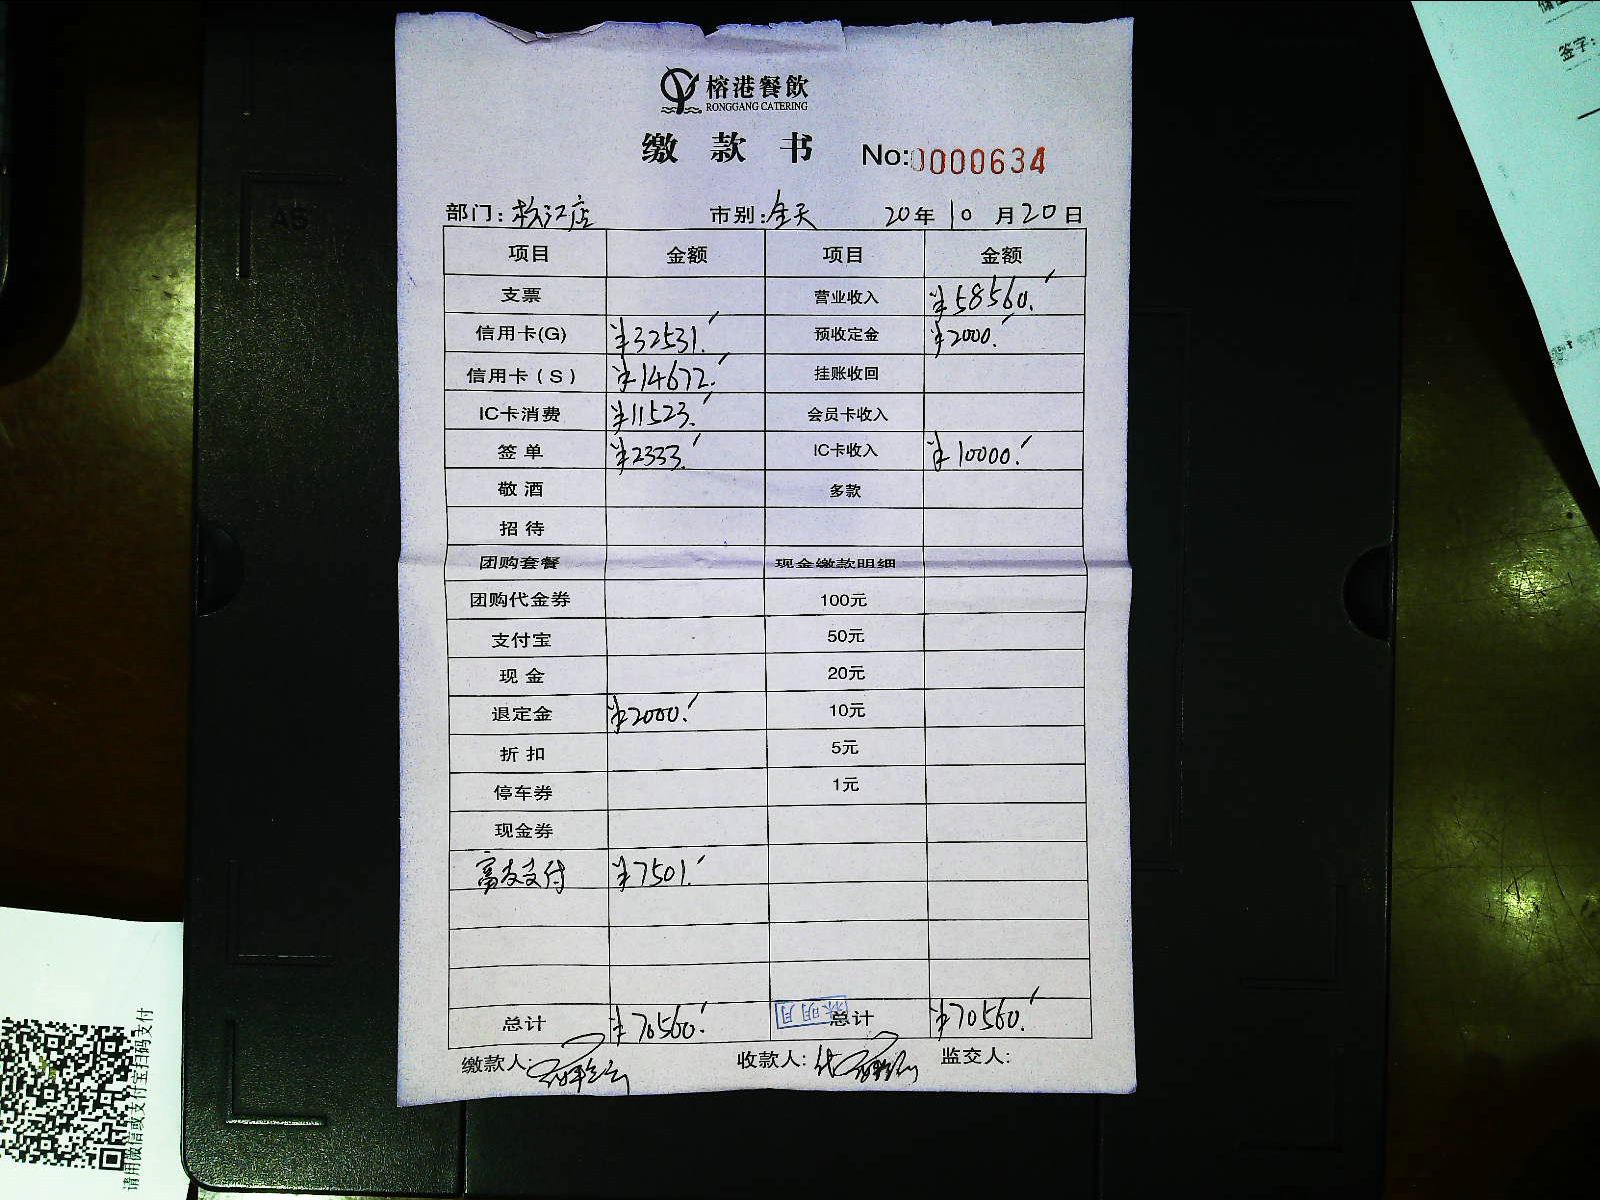 榕港餐飲
RONGGANG CATERING
缴款书 No:0000634
部门:松江店 市别:全天 20年10月20日
项目 金额 项目 金额
支票 营业收入 ¥58560.
信用卡(G) ¥32531. 预收定金 ¥2000.
信用卡(S) ¥14672. 挂账收回
IC卡消费 ¥11523. 会员卡收入
签单 ¥2333. IC卡收入 ¥10000.
敬酒 多款
招待
团购套餐 现金缴款明细
团购代金券 100元
支付宝 50元
现金 20元
退定金 ¥2000. 10元
折扣 5元
停车券 1元
现金券
支付 ¥7501.
总计 ¥70560. 总计 ¥70560.
缴款人: 收款人:代 监交人:
签字:
请用微信或支付宝扫码支付